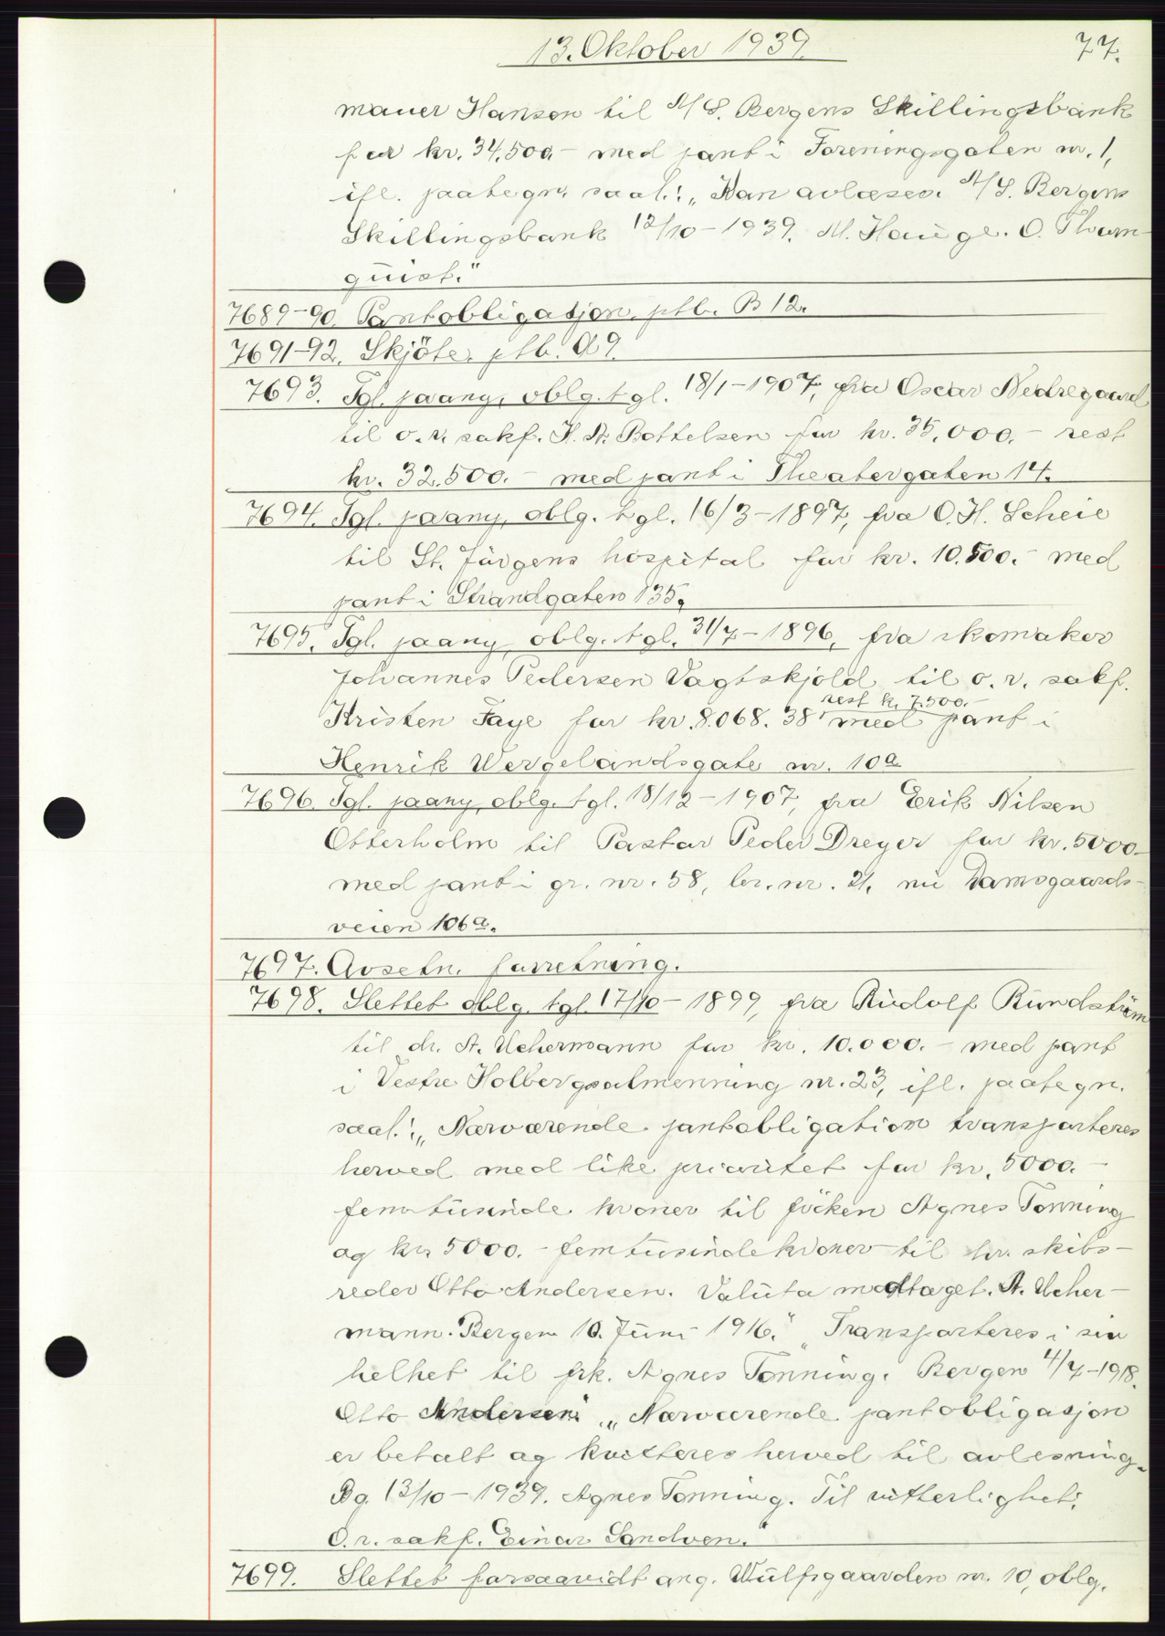 13. Oktober 1939.
77.
mauer Hansen til A/S. Bergens Skillingsbank
for kr. 34.500.- med pant i Foreningsgaten nr. 1,
ifl. paategn. saal.: „Kan avlæses. A/S. Bergens
Skillingsbank 12/10-1939. M. Hauge. O. Thorn-
quist."
7689-90. Pantobligasjon. ptb. B 12.
7691-92. Skjöte. ptb. A 9.
7693. Tgl. paany, oblg. tgl. 18/1-1907, fra Oscar Nedregaard
til o.r. sakf. K. A. Bottelsen for kr. 35.000.- rest
kr. 32.500.- med pant i Theatergaten 14.
7694. Tgl. paany, oblg. tgl. 16/3-1897, fra O. H. Scheie
til St. Jörgens hospital for kr. 10.500.- med
pant i Strandgaten 135.
7695. Tgl. paany, oblg. tgl. 31/7-1896, fra skomaker
Johannes Pedersen Vagtskjold til o.r. sakf.
Kristen Faye for kr. 8.068.38 rest k. 7.500.- med pant i
Henrik Wergelandsgate nr. 10a
7696. Tgl. paany, oblg. tgl. 18/12-1907, fra Erik Nilsen
Otterholm til Pastor Peder Dreyer for kr. 5000-
med pant i gr. nr. 58, br. nr. 21. nu Damsgaards-
veien 106a.
7697. Avsetn. forretning.
7698. Slettet oblg. tgl. 17/10-1899, fra Rudolf Rundström
til dr. A. Uchermann for kr. 10.000.- med pant
i Vestre Holbergsalmenning nr. 23, ifl. paategn.
saal.: „Nærværende pantobligation transporteres
herved med like prioritet for kr. 5000.-
femtusinde kroner til fröken Agnes Tonning
og kr. 5000.- femtusinde kroner til hr. skibs-
reder Otto Andersen. Valuta modtaget. A. Ucher-
mann. Bergen 10. Juni 1916." „Transporteres i sin
helhet til frk. Agnes Tonning. Bergen 4/7-1918.
Otto Andersen." „Nærværende pantobligasjon
er betalt og kvitteres herved til avlesning.
Bg. 13/10-1939. Agnes Tonning. Til vitterlighet:
O.r. sakf. Einar Sandven."
7699. Slettet forsaavidt ang. Wulfsgaarden nr. 10, oblg.